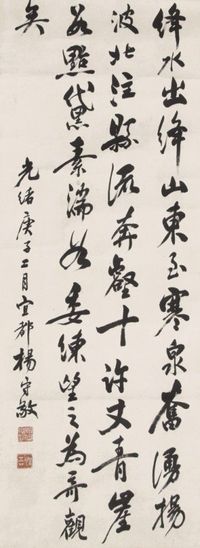 絳水出絳山東至寒泉奮湧揚
波北注縣流奔壑十許丈青崖
若點黛素湍如委練望之為奇觀
矣
光緒庚子二月宜都楊守敬